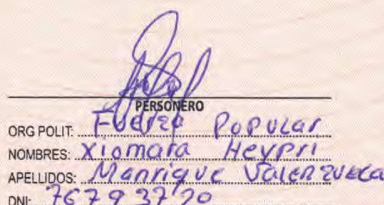 PERSONERO
ORG POLIT: Fuerza Popular
NOMBRES: Xiomara Heypri
APELLIDOS: Manrique Valenzuela
DNI: 76793720